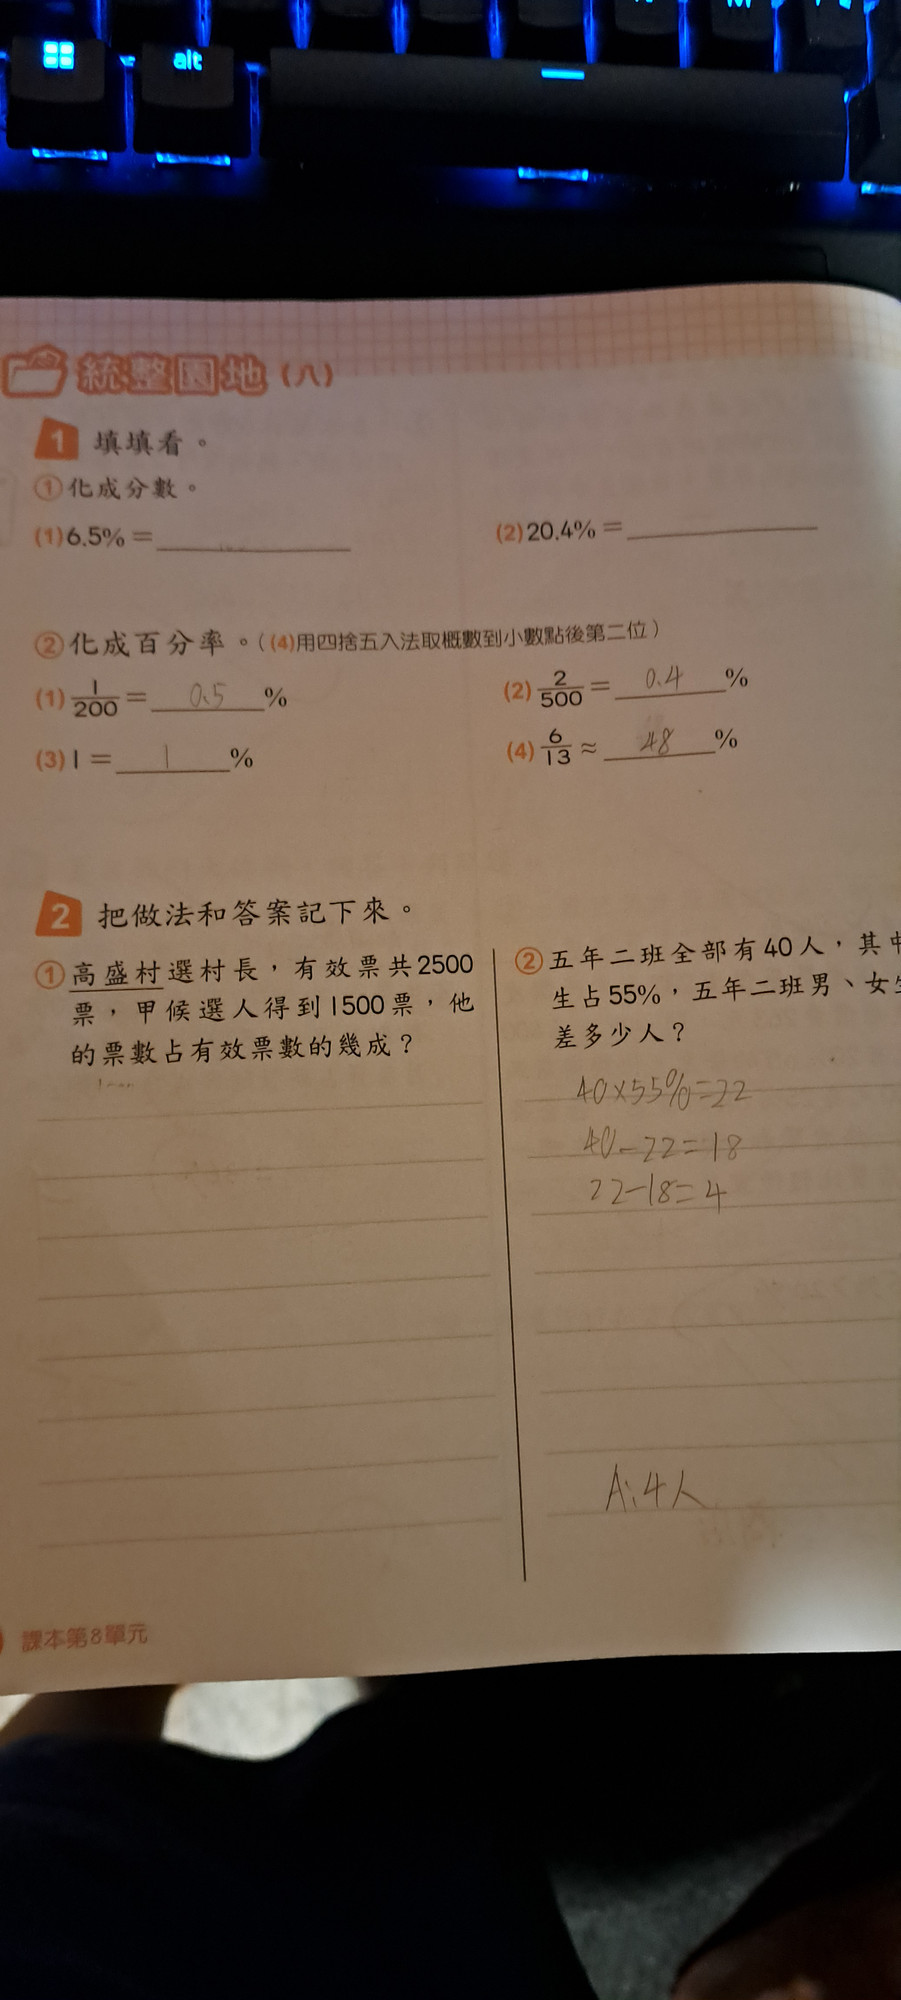 alt
統整園地(八)
1 填填看。
①化成分數。
(1)6.5%=
(2)20.4%=
②化成百分率。((4)用四捨五入法取概數到小數點後第二位)
(1) 1/200 = 0.5 %
(2) 2/500 = 0.4 %
(3) 1 = 1 %
(4) 6/13 ≈ 48 %
2 把做法和答案記下來。
①高盛村選村長,有效票共2500
票,甲候選人得到1500票,他
的票數占有效票數的幾成?
②五年二班全部有40人,其中
生占55%,五年二班男、女生
差多少人?
40×55%=22
40-22=18
22-18=4
A:4人
課本第8單元